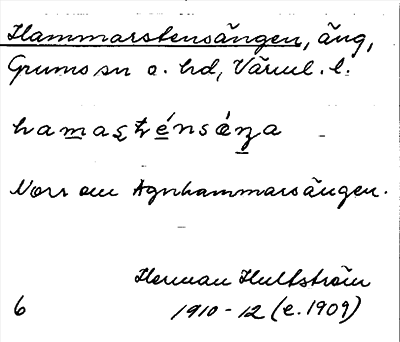 Hammarstensängen, äng,
Grums sn o. hd, Värml. l.
hamasténsáŋa
Norr om Agnhammarsängen.
Herman Hultström
6 1910-12 (e. 1909)